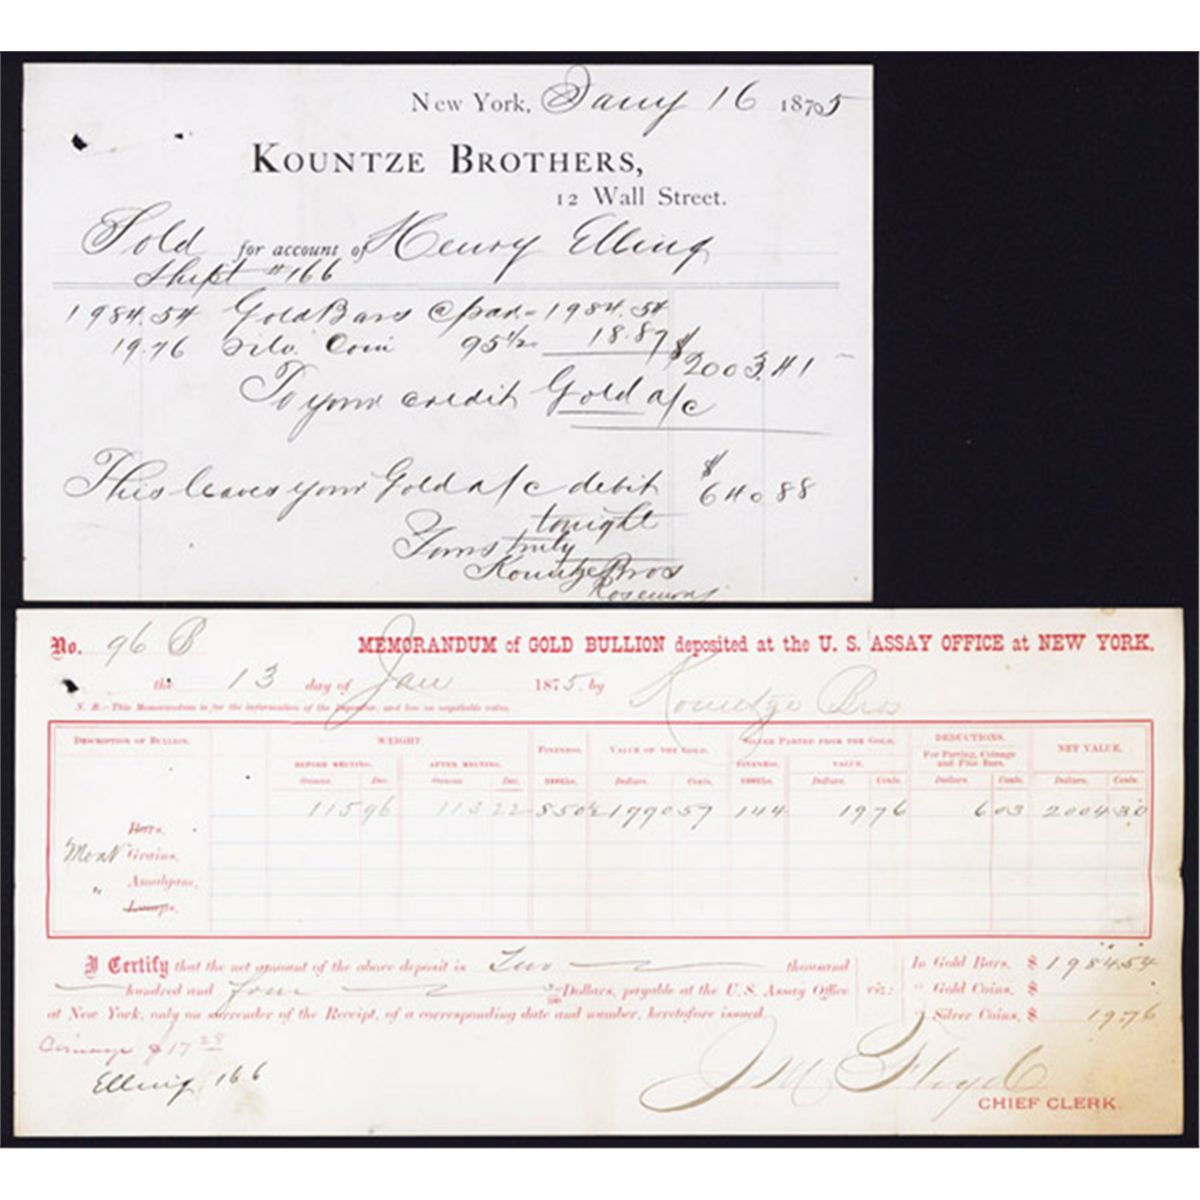 New York, Jany 16 1875
KOUNTZE BROTHERS,
12 Wall Street.
Sold for account of Henry Elling
Shipt #166
1984.54 Gold Bars @ par = 1984.54
19.76 Silv. Coin 95 1/2 18.87 $2003.41
To your credit Gold a/c
This leaves your Gold a/c debit $640.88
tonight
Yours truly
Kountze Bros
No. 96 B MEMORANDUM of GOLD BULLION deposited at the U. S. ASSAY OFFICE at NEW YORK.
the 13 day of Jan 1875. by Kountze Bros
N. B.—This Memorandum is for the information of the Depositor, and has no negotiable value.
DESCRIPTION OF BULLION. WEIGHT. FINENESS. VALUE OF THE GOLD. SILVER PARTED FROM THE GOLD. DEDUCTIONS. NET VALUE.
BEFORE MELTING. AFTER MELTING. FINENESS. VALUE. For Parting, Coinage and Fine Bars.
Ounces. Dec. Ounces. Dec. 1000ths. Dollars. Cents. 1000ths. Dollars. Cents. Dollars. Cents. Dollars. Cents.
115 96 113 22 850½ 1990 57 144 19 76 6 03 2004 30
Bars.
Mont Grains.
" Amalgam.
Lumps.
I Certify that the net amount of the above deposit is Two thousand In Gold Bars, $ 1984.54
hundred and four 30/100 Dollars, payable at the U. S. Assay Office viz: " Gold Coins, $
at New York, only on surrender of the Receipt, of a corresponding date and number, heretofore issued. " Silver Coins, $ 19.76
Coinage $17 28
Elling 166
J M Floyd
CHIEF CLERK.